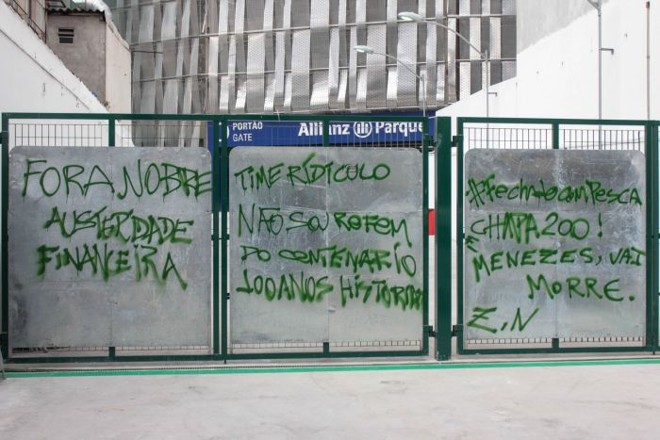 PORTÃO
GATE
Allianz Parque
FORA, NOBRE
AUSTERIDADE
FINANCEIRA
TIME RÍDICULO
NÃO SOU REFEM
DO CENTENÁRIO
100 ANOS HISTÓRIA
#FechatocomPESCA
CHAPA 200!
E
MENEZES, VAI
MORRE.
Z.N